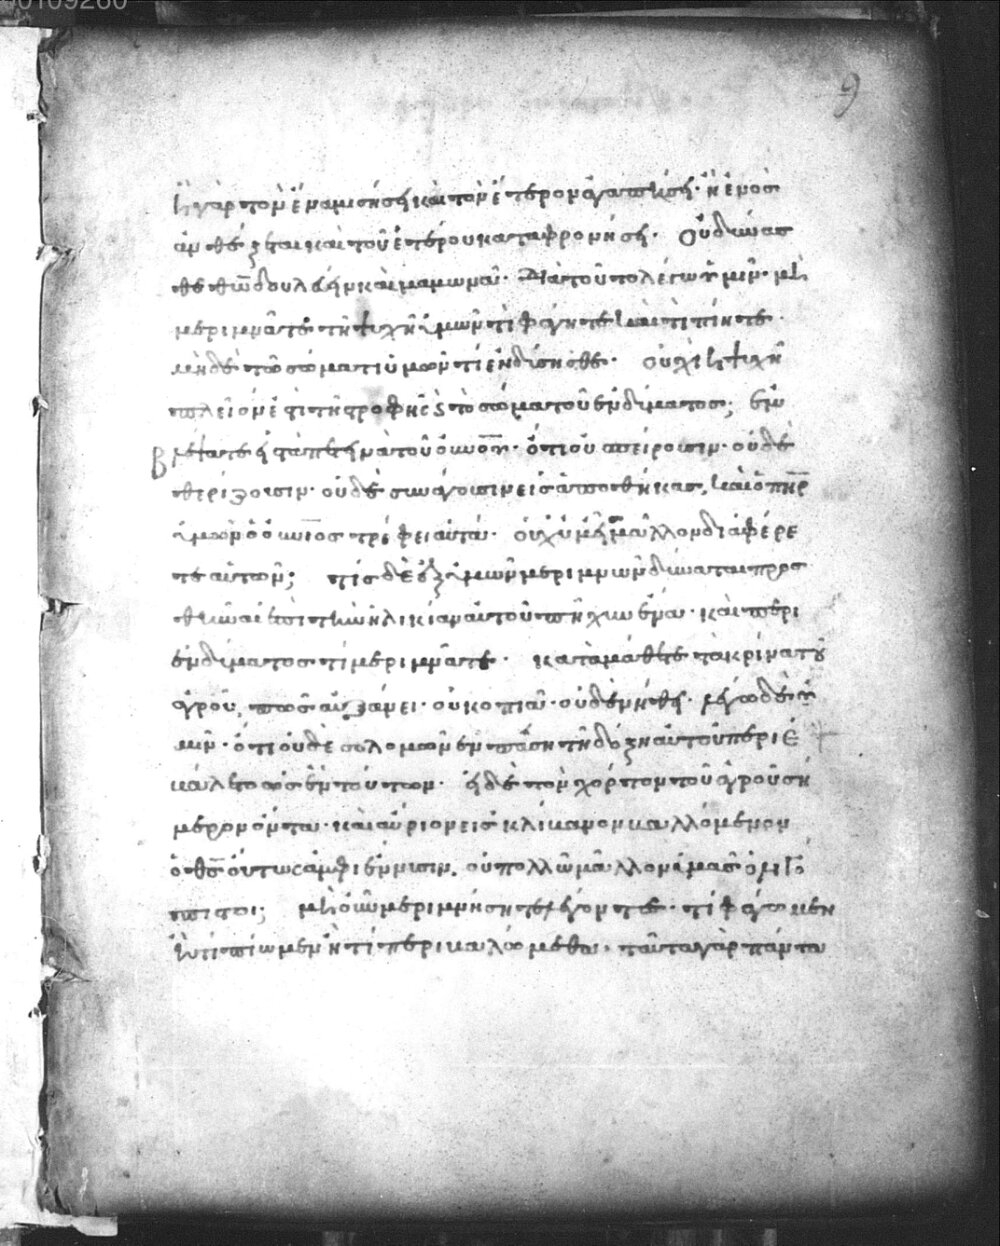 00109260
9
ἢ γὰρ τὸν ἕνα μισήσει καὶ τὸν ἕτερον ἀγαπήσει· ἢ ἑνὸς
ἀνθέξεται καὶ τοῦ ἑτέρου καταφρονήσει· Οὐ δύνασ
θε θῶ δουλεύειν καὶ μαμωνᾶ· Διὰ τοῦτο λέγω ὑμῖν· μὴ
μεριμνᾶτε τῇ ψυχῇ ὑμῶν τί φάγητε καὶ τί πίητε·
μηδὲ τῶ σώματι ὑμῶν τί ἐνδύσησθε· οὐχὶ ἡ ψυχὴ
πλεῖόν ἐστι τῆς τροφῆς ϗ τὸ σῶμα τοῦ ἐνδύματος; ἐμ
βλέψατε εἰς τὰ πετεινὰ τοῦ οὐνοῦ· ὅτι οὐ σπείρουσιν· οὐδὲ
θερίζουσιν· οὐδὲ συνάγουσιν εἰς ἀποθήκας, καὶ ὁ πηρ
ὑμῶν ὁ οὐνιος τρέφει αὐτά· οὐχ ὑμεῖς μᾶλλον διαφέρε
τε αὐτῶν; τίς δὲ ἐξ ὑμῶν μεριμνῶν δύναται προσ
θεῖναι ἐπὶ τὴν ἡλικίαν αὐτοῦ πῆχυν ἕνα· καὶ περὶ
ἐνδύματος τί μεριμνᾶτε· καταμάθετε τὰ κρίνα τοῦ
ἀγροῦ, πῶς αὐξάνει· οὐ κοπιᾶ· οὐδὲ νήθει· λέγω δὲ ὑ
μῖν· ὅτι οὐδὲ σολομὼν ἐν πάση τῇ δόξη αὐτοῦ περιε
βάλετο ὡς ἓν τούτων· εἰ δὲ τὸν χόρτον τοῦ ἀγροῦ σή
μερον ὄντα· καὶ αὔριον εἰς κλίβανον βαλλόμενον
ὁ θς οὕτως ἀμφιέννυσιν, οὐ πολλῶ μᾶλλον ὑμᾶς ὀλιγό
πιστοι; μὴ οὖν μεριμνήσητε λέγοντες· τί φάγωμεν
ἢ τί πίωμεν ἢ τί περιβαλώμεθα· ταῦτα γὰρ πάντα